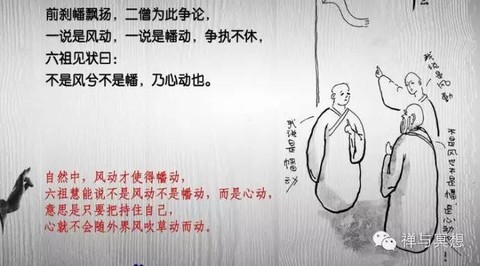 前刹幡飘扬,二僧为此争论,
一说是风动,一说是幡动,争执不休,
六祖见状曰:
不是风兮不是幡,乃心动也。
我说是风动
我说是幡动
不是风也不是幡是心动
自然中,风动才使得幡动,
六祖慧能说不是风动不是幡动,而是心动,
意思是只要把持住自己,
心就不会随外界风吹草动而动。
禅与冥想